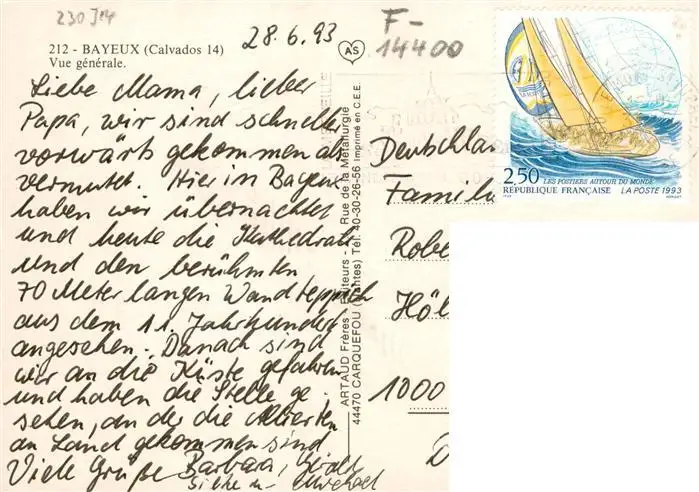 230 J14
28.6.93
F-
14400
212 - BAYEUX (Calvados 14)
Vue générale.
AS
Liebe Mama, lieber
Papa, wir sind schneller
vorwärts gekommen als
vermutet. Hier in Bayeux
haben wir übernachtet
und heute die Kathedrale
und den berühmten
70 Meter langen Wandteppich
aus dem 11. Jahrhundert
angesehen. Danach sind
wir an die Küste gefahren
und haben die Stelle ge-
sehen, an der die Alliierten
an Land gekommen sind
Viele Grüße Barbara,
ARTAUD Frères - Editeurs - Rue de la Métallurgie
44470 CARQUEFOU (Nantes) Tél. 40-30-26-56 Imprimé en C.E.E.
2,50 LES POSTIERS AUTOUR DU MONDE
RÉPUBLIQUE FRANÇAISE LA POSTE 1993
Deutschland
Famili
Robe
Höl
1000